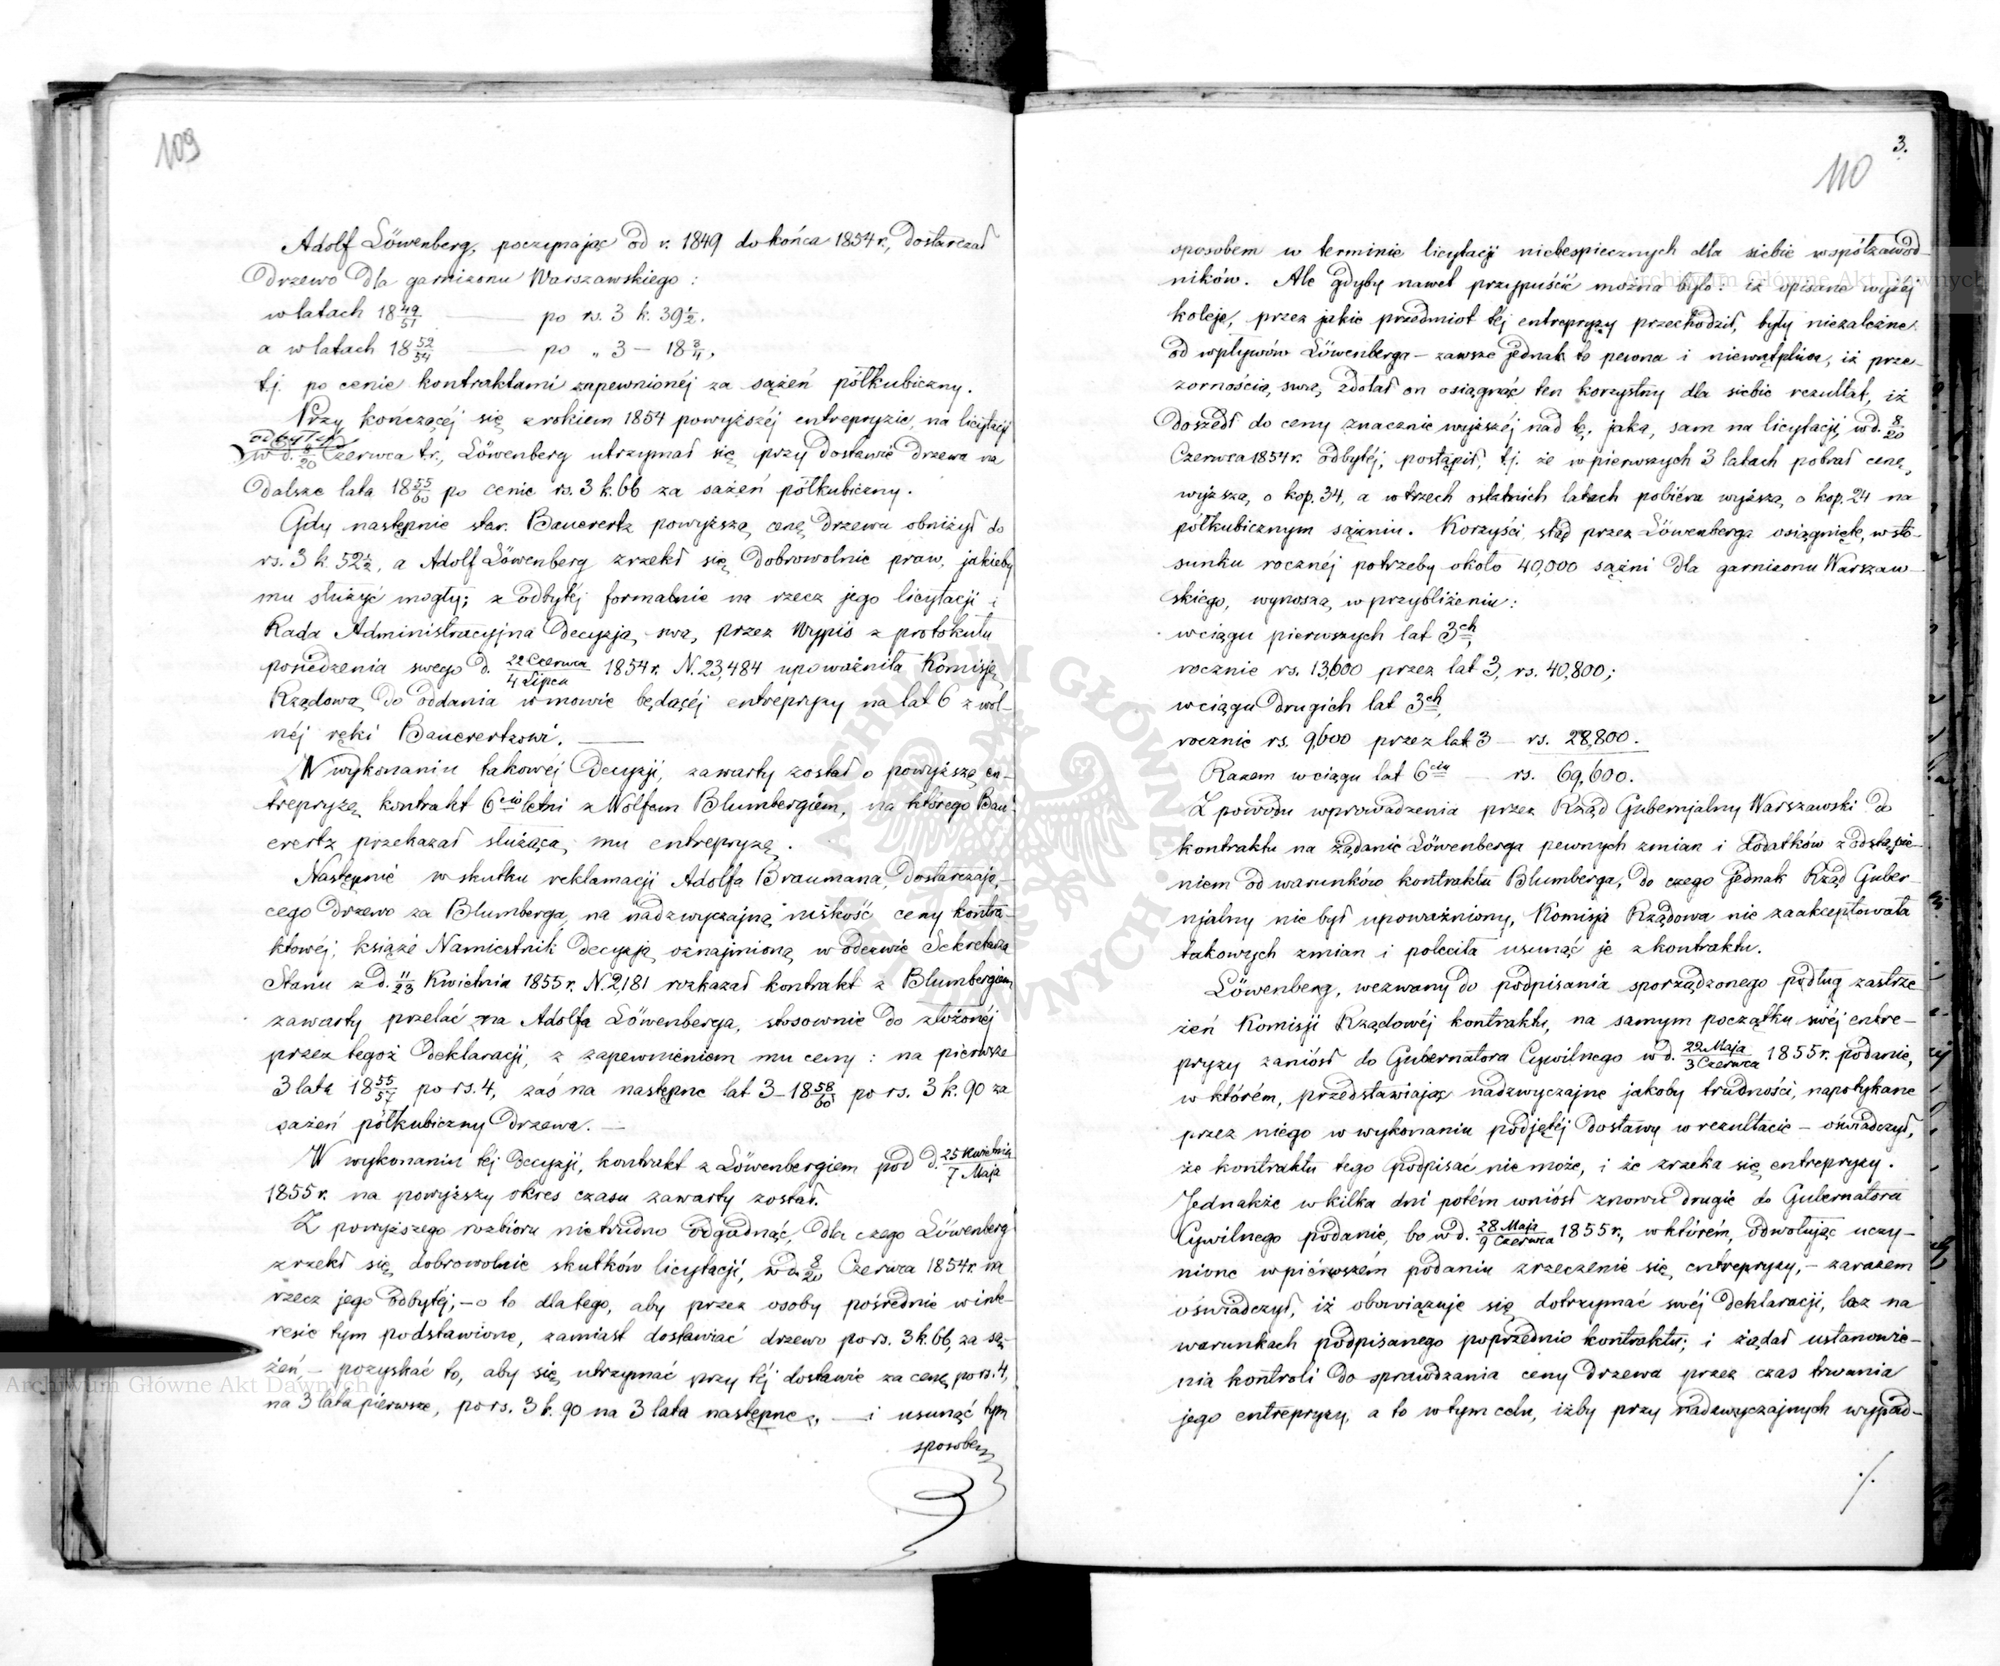 109
Adolf Löwenberg, poczynając od r. 1849 do końca 1854 r., dostarczał
drzewo dla garnizonu Warszawskiego:
w latach 18 49/51 — po rs. 3 k. 39½.
a w latach 18 52/54 — po „ 3 — 18¾,
t.j. po cenie kontraktami zapewnionéj za sążeń półkubiczny.
Przy kończącéj się z rokiem 1854 powyższéj entrepryzie, na licytacji
odbytéj
w d. 8/20 Czerwca t.r., Löwenberg utrzymał się przy dostawie drzewa na
dalsze lata 18 55/60 po cenie rs. 3 k. 66 za sążeń półkubiczny.
Gdy następnie star. Bauerertz powyższą cenę drzewa obniżył do
rs. 3 k. 52½, a Adolf Löwenberg zrzekł się dobrowolnie praw, jakieby
mu służyć mogły; z odbytéj formalnie na rzecz jego licytacji i
Rada Administracyjna decyzją swą, przez Wypis z protokułu
posiedzenia swego d. 22 Czerwca/4 Lipca 1854 r. N. 23,484 upoważniła Komisję
Rządową do oddania w mowie będącéj entrepryzy na lat 6 z wol-
néj ręki Bauerertzowi. —
W wykonaniu takowéj decyzji, zawarty został o powyższą en-
trepryzę kontrakt 6cio letni z Wolfem Blumbergiem, na którego Bau-
erertz przekazał służącą mu entrepryzę.
Następnie w skutku reklamacji Adolfa Braumana, dostarczają-
cego drzewo za Blumberga, na nadzwyczajną niskość ceny kontra-
ktowéj; książę Namiestnik decyzją oznajmioną w odezwie Sekretarza
Stanu z d. 11/23 Kwietnia 1855 r. N. 2,181 rozkazał kontrakt z Blumbergiem
zawarty przelać na Adolfa Löwenberga, stosownie do złożonéj
przez tegoż deklaracji, z zapewnieniem mu ceny: na pierwsze
3 lata 18 55/57 po rs. 4, zaś na następne lat 3 — 18 58/60 po rs. 3 k. 90 za
sążeń półkubiczny drzewa. —
W wykonaniu téj decyzji, kontrakt z Löwenbergiem pod d. 25 Kwietnia/7 Maja
1855 r. na powyższy okres czasu zawarty został.
Z powyższego rozbioru nietrudno odgadnąć, dla czego Löwenberg
zrzekł się dobrowolnie skutków licytacji, w d. 8/20 Czerwca 1854 r. na
rzecz jego odbytéj; — o to dlatego, aby przez osoby pośrednie w inte-
resie tym podstawione, zamiast dostawiać drzewo po rs. 3 k. 66, za są-
żeń, — pozyskać to, aby się utrzymać przy téj dostawie za cenę po rs. 4,
na 3 lata pierwsze, po rs. 3 k. 90 na 3 lata następne, — i usunąć tym
sposobem
3.
110
sposobem w terminie licytacji niebespiecznych dla siebie współzawod-
ników. Ale gdyby nawet przypuścić można było: iż opisane wyżéj
koleje, przez jakie przedmiot téj entrepryzy przechodził, były niezależne
od wpływów Löwenberga — zawsze jednak to pewna i niewątpliwa, iż prze-
zornością swą, zdołał on osiągnąć ten korzystny dla siebie rezultat, iż
doszedł do ceny znacznie wyższéj nad tę, jaką, sam na licytacji, w d. 8/20
Czerwca 1854 r. odbytéj, postąpił, t.j. że w pierwszych 3 latach pobrał cenę
wyższą o kop. 34, a w trzech ostatnich latach pobiéra wyższą o kop. 24 na
półkubicznym sążniu. Korzyści ztąd przez Löwenberga osiągnięte, w sto-
sunku rocznéj potrzeby około 40,000 sążni dla garnizonu Warszaw-
skiego, wynoszą w przybliżeniu:
w ciągu pierwszych lat 3ch
rocznie rs. 13,600 przez lat 3, rs. 40,800;
w ciągu drugich lat 3ch
rocznie rs. 9,600 przez lat 3 — rs. 28,800.
Razem w ciągu lat 6ciu — rs. 69,600.
Z powodu wprowadzenia przez Rząd Gubernjalny Warszawski do
kontraktu na żądanie Löwenberga pewnych zmian i dodatków z odstąpie-
niem od warunków kontraktu Blumberga, do czego jednak Rząd Guber-
njalny nie był upoważniony, Komisja Rządowa nie zaakceptowała
takowych zmian i poleciła usunąć je z kontraktu.
Löwenberg, wezwany do podpisania sporządzonego podług zastrze
żeń Komisji Rządowéj kontraktu, na samym początku swéj entre-
pryzy zaniósł do Gubernatora Cywilnego w d. 22 Maja/3 Czerwca 1855 r. podanie,
w którém, przedstawiając nadzwyczajne jakoby trudności, napotykane
przez niego w wykonaniu podjętéj dostawy w rezultacie — oświadczył,
że kontraktu tego podpisać nie może, i że zrzeka się entrepryzy.
Jednakże w kilka dni potém wniósł znowu drugie do Gubernatora
Cywilnego podanie, bo w d. 28 Maja/9 Czerwca 1855 r., w którém, odwołując uczy-
nione w piérwszém podaniu zrzeczenie się entrepryzy, — zarazem
oświadczył, iż obowiązuje się dotrzymać swéj deklaracji, lecz na
warunkach podpisanego poprzednio kontraktu; i żądał ustanowie-
nia kontroli do sprawdzania ceny drzewa przez czas trwania
jego entrepryzy, a to w tym celu, iżby przy nadzwyczajnych wypad-
./.
Archiwum Główne Akt Dawnych
Archiwum Główne Akt Dawnych
ARCHIWUM GŁÓWNE AKT DAWNYCH